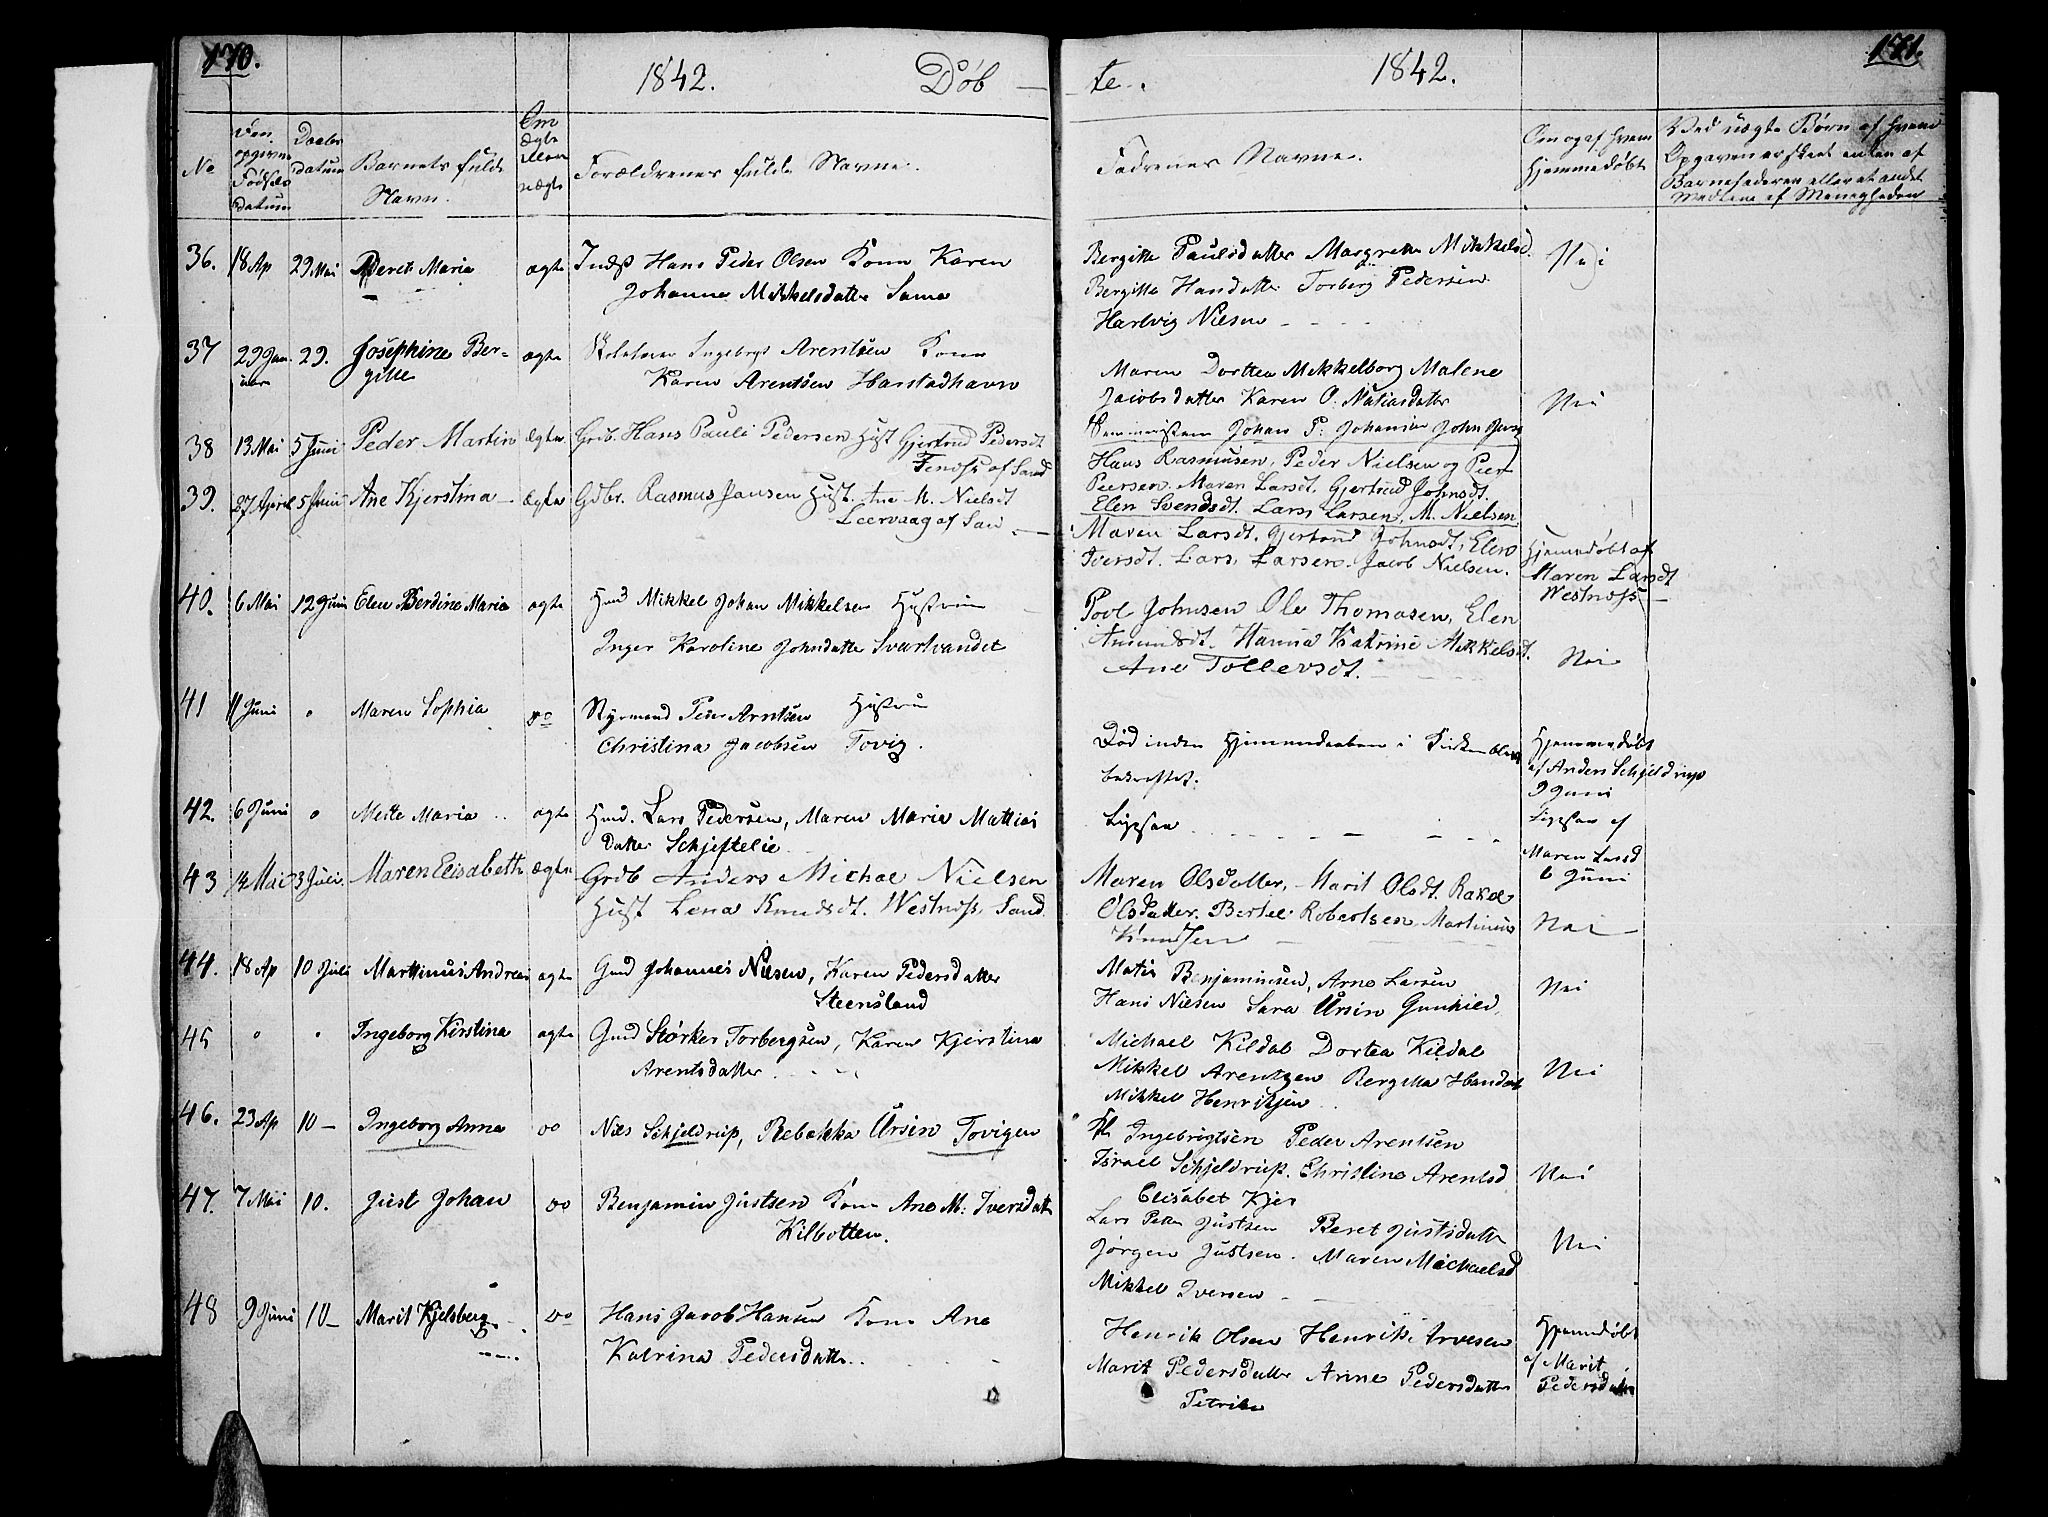 170.
1842.
Døb —
te.
1842.
171.
No
Den opgivne Fødsels datum
Daabs datum
Barnets fulde Navn.
Om ægte eller uægte
Forældrenes fulde Navne.
Fadrenes Navne.
Om og af hvem hjemmedøbt
Ved uægte Børn af hvem Opgaven er skeet enten af Barnefaderen eller et andet Medlem af Menigheden
36. 18 Ap 29 Mai Beret Maria ægte Inds Hans Peder Olsen Kone Karen
Johanna Mikkelsdatter Sama
Bergitte Paulsdatter Margrete Mikkelsd.
Bergitta Hansdatter Torberg Pedersen
Hartvig Nielsen
Nei
37 29 Januar 29. Josephine Bergitte ægte Ingebrigt Arentsen Kone
Karen Arentsen Harstadhavn
Maren Dorttea Mekkelborg Malene
Jacobsdatter Karen O. Matiasdatter
Nei
38 13 Mai 5 Juni Peder Martin Ægte Grdb. Hans Pauli Pedersen Hust Gjertrud Pedersdt.
af Sand
Johan P. Johansen John
Hans Rasmusen, Peder Nielsen og Peer
Peersen. Maren Larsdt. Gjertrud Johnsdt.
Elen Svendsdt. Lars Larsen, M. Nielsen
39. 27 April 5 Juni Ane Kjerstina Ægte Gdbr. Rasmus Jansen Hust. Ane M. Nielsdt
Leervaag af San
Maren Larsdt. Gjertrud Johnsdt. Elen
Iversdt. Lars Larsen. Jacob Nielsen.
Hjemmedøbt af
Maren Larsdt
Westnæss
40. 6 Mai 12 Juni Elen Berdine Maria ægte Hmd Mikkel Johan Mikkelsen Hustru
Inger Karoline Johndatter Svartvandet
Povl Johnsen Ole Thomasen, Elen
Amundsdt. Hanna Katrine Mikkelsdt.
Ane Tollevsdt.
Nei
41 11 Juni " Maren Sophia do Styrmand Peter Arntsen Hustru
Christina Jacobsen Tovig.
Død inden Hjemmedaaben i Kirken blev
bekræftet.
Hjemmedøbt
af Anders Schjeldrup
9 Juni
42. 6 Juni " Mette Maria ægte Hmd. Lars Pedersen, Maren Maria Mattias
datter Schjeftelie
Ligesaa
Ligesaa af
Maren Larsd
6 Juni
43 14 Mai 3 Juli. Maren Elisabeth Ægte Grdb Anders Michael Nielsen
Hust Lena Knudsdt. Westnæss, Sand
Maren Olsdatter, Marit Olsdt. Rakel
Olsdatter. Bertel Robertsen, Martinus
Knudsen
Nei
44. 18 Ap 10 Juli Martinus Andreas ægte Gmd Johannes Nilsen, Karen Pedersdatter
Steensland
Matis Benjaminsen, Arne Larsen
Hans Nilsen Sara Ursin Gunhild
Nei
45 " " Ingeborg Kirstina ægte Gmd Størker Torbergsen, Karen Kjerstina
Arentsdatter
Michael Kildal Dortea Kildal
Mikkel Arentzen Bergitta Hansdat
Mikkel Henriksen
Nei
46. 23 Ap 10 — Ingeborg Anna do Nils Schjeldrup, Rebekka Ursin Tovigen
Ingebrigtsen Peder Arentsen
Israel Schjeldrup. Christine Arentsd
Elisabet Kjer
Nei
47. 7 Mai 10. Just Johan do Benjamin Justsen Kone Ane M: Iversdat
Kilbotten.
Lars Peter Justsen Beret Justsdatter
Jørgen Justsen. Maren Michaelsd
Mikkel Iversen
Nei
48 9 Juni 10 — Marit Kjelsberg do Hans Jacob Hansen Kone Ane
Katrina Pedersdatter.
Henrik Olsen Henrik Arvesen
Marit Pedersdatter Anne Pedersdatter
Petrikke
Hjemmdøbt
af Marit
Pedersdatter